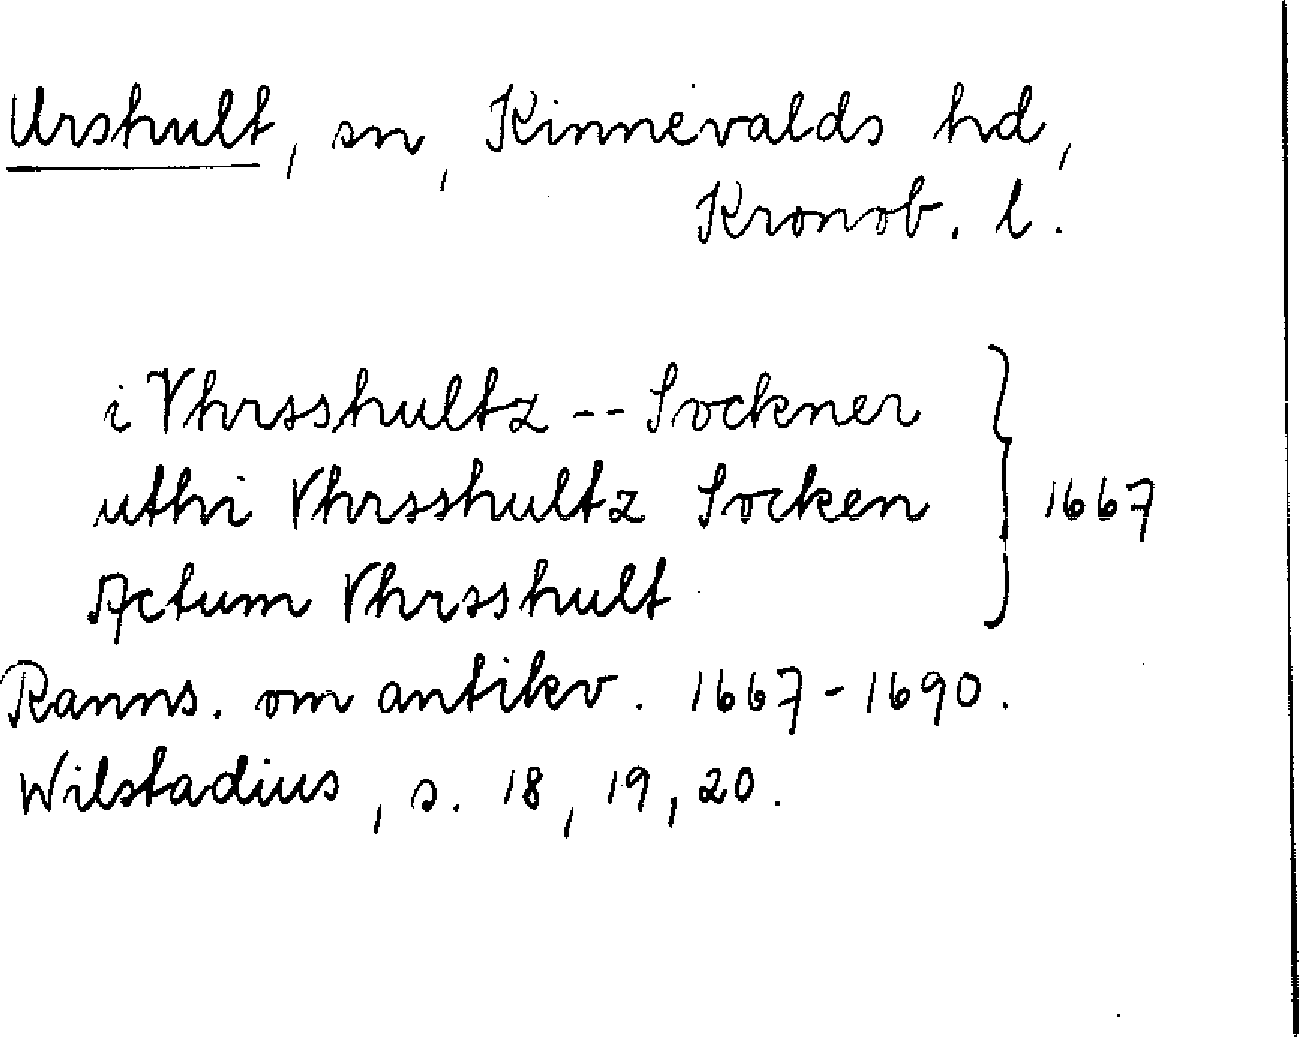 Urshult, sn, Kinnevalds hd,
Kronob. l.
i Vhrsshultz -- Sockner
uthi Vhrsshultz Socken } 1667
Actum Vhrsshult
Ranns. om antikv. 1667-1690.
Wilstadius, s. 18, 19, 20.